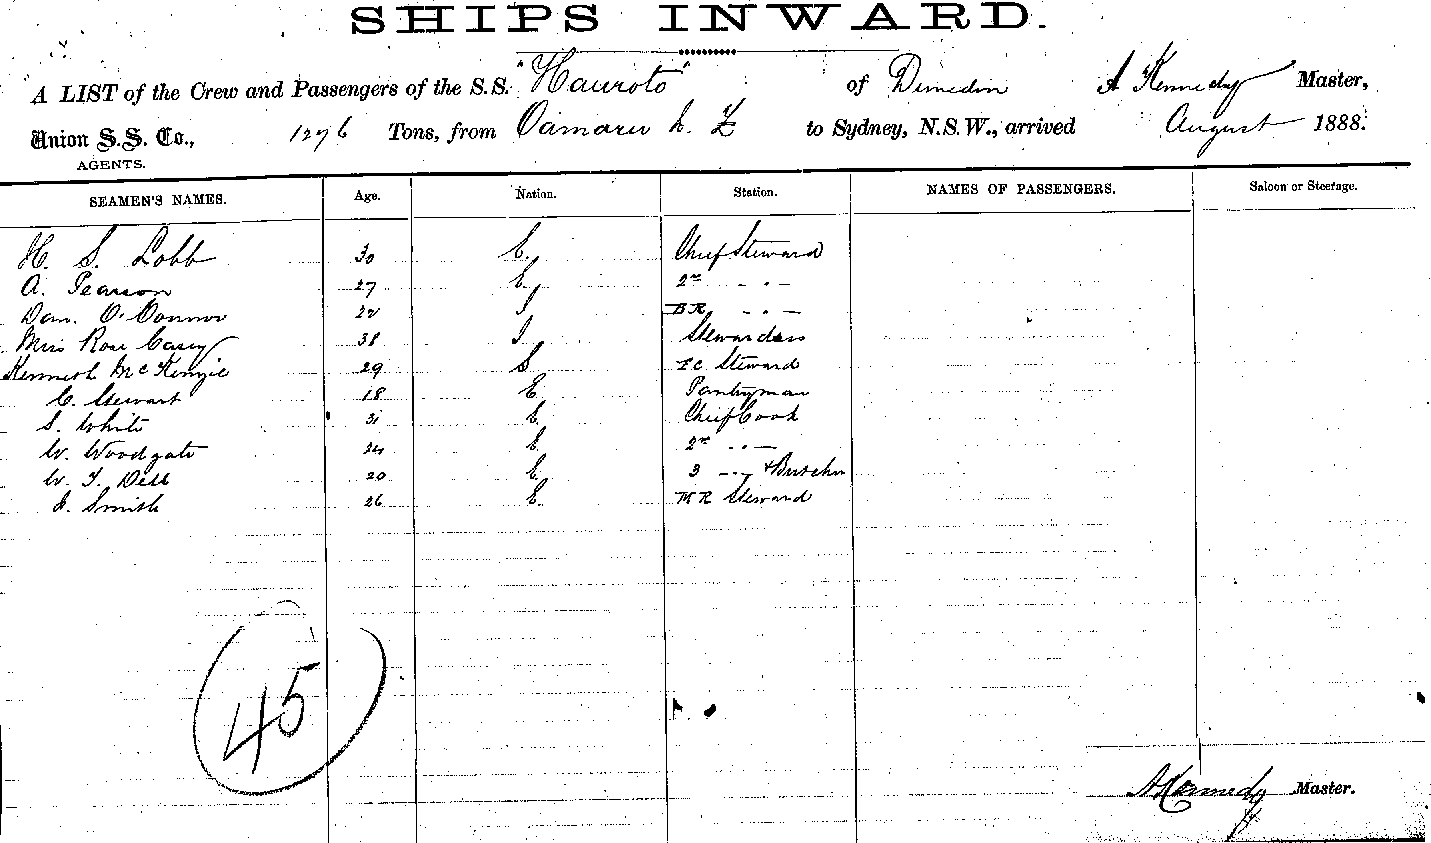 SHIPS INWARD.
A LIST of the Crew and Passengers of the S.S. "Hauroto" of Dunedin A Kennedy Master,
Union S.S. Co., 1276 Tons, from Oamaru N. Z to Sydney, N.S.W., arrived August 1888.
AGENTS.
SEAMEN'S NAMES. Age. Nation. Station. NAMES OF PASSENGERS. Saloon or Steerage.
H. S. Lobb 30 E. Chief Steward
A. Pearson 27 E, 2nd - . . -
Dan. O'Connor I BR - . . -
Miss Rose Casey 38 I. Stewardess
Kenneth McKenzie 29 S. Steward
C. Stewart 18 E Pantryman
S. White 31 E. Chief Cook
W. Woodgate 24 E. 2nd - . . -
W. J. 20 E. 3 - . . - + Butcher
J. Smith 26 E. MR Steward
45
A Kennedy Master.